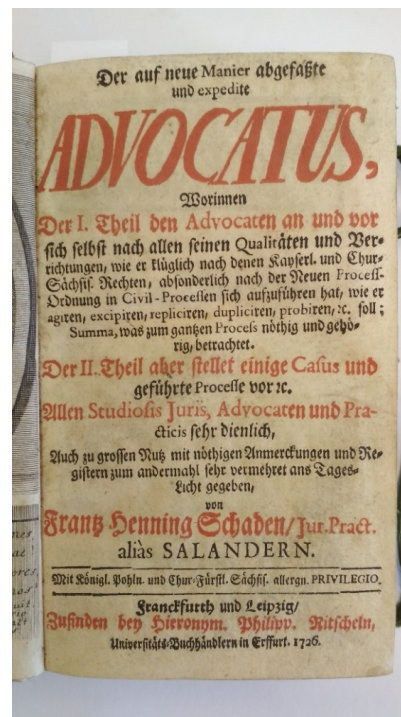 Der auf neue Manier abgefaßte
und expedite
ADVOCATUS,
Worinnen
Der I. Theil den Advocaten an und vor
sich selbst nach allen seinen Qualitäten und Ver-
richtungen, wie er klüglich nach denen Kayserl. und Chur-
Sächsis. Rechten, absonderlich nach der Neuen Process-
Ordnung in Civil-Processen sich aufzuführen hat, wie er
agiren, excipiren, repliciren, dupliciren, probiren, ꝛc. soll;
Summa, was zum gantzen Process nöthig und gehö-
rig, betrachtet.
Der II. Theil aber stellet einige Casus und
geführte Processe vor ꝛc.
Allen Studiosis Juris, Advocaten und Pra-
cticis sehr dienlich,
Auch zu grossen Nutz mit nöthigen Anmerckungen und Re-
gistern zum andermahl sehr vermehret ans Tages-
Licht gegeben,
von
Frantz Henning Schaden/ Jur. Pract.
aliàs SALANDERN.
Mit Königl. Pohln. und Chur-Fürstl. Sächsis. allergn. PRIVILEGIO.
Franckfurth und Leipzig/
Zufinden bey Hieronym. Philipp. Ritscheln,
Universitäts-Buchhändlern in Erffurt. 1726.